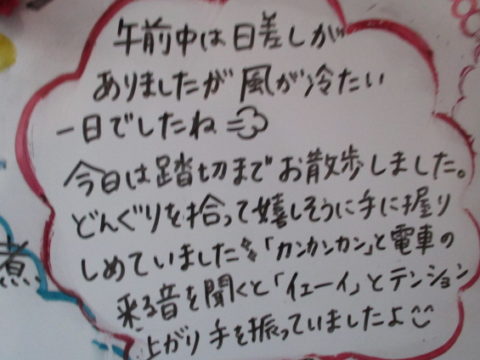 午前中は日差しが
ありましたが風が冷たい
一日でしたね
今日は踏切までお散歩しました。
どんぐりを拾って嬉しそうに手に握り
しめていました「カンカンカン」と電車の
来る音を聞くと「イェーイ」とテンション
上がり手を振っていましたよ
煮